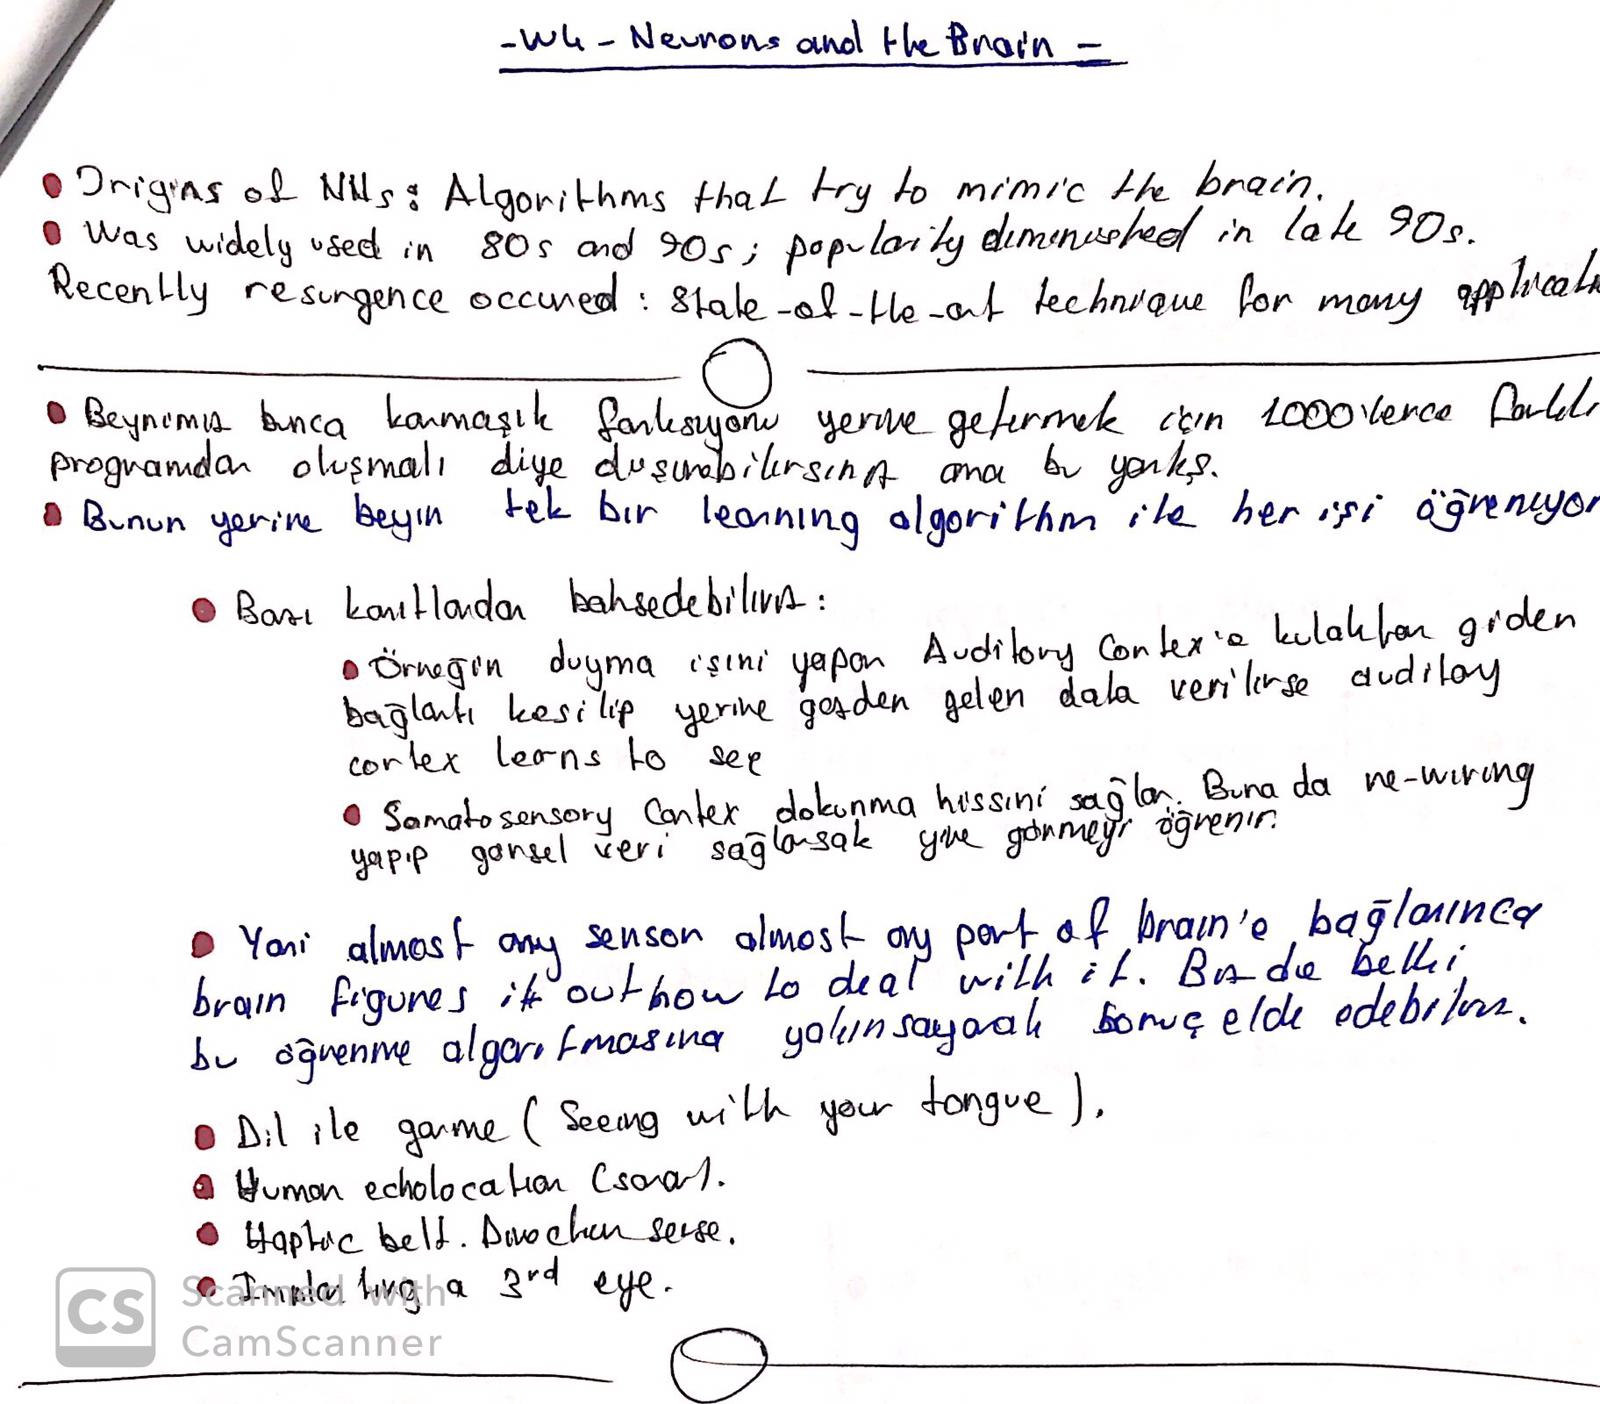 -W4 - Neurons and the Brain -
Origins of NNs: Algorithms that try to mimic the brain.
Was widely used in 80s and 90s; popularity diminished in late 90s.
Recently resurgence occured: State-of-the-art technique for many applicati
Beynimiz bunca karmaşık fonksiyonu yerine getirmek için 1000'lerce farklı
programdan oluşmalı diye düşünebilirsiniz ama bu yanlış.
Bunun yerine beyin tek bir learning algorithm ile her işi öğreniyor
Bazı kanıtlardan bahsedebiliriz:
Örneğin duyma işini yapan Auditory Cortex'e kulaktan giden
bağlantı kesilip yerine gözden gelen data verilirse auditoy
cortex learns to see
Somatosensory Cortex dokunma hissini sağlar. Buna da re-wiring
yapıp görsel veri sağlarsak yine görmeyi öğrenir.
Yani almost any sensor almost any part of brain'e bağlanınca
brain figures it out how to deal with it. Biz de belki
bu öğrenme algoritmasına yakınsayarak sonuç elde edebiliriz.
Dil ile görme (Seeing with your tongue).
Human echolocation (sonar).
Haptic belt. Direction sense.
Implanting a 3rd eye.
CS Scanned with
CamScanner